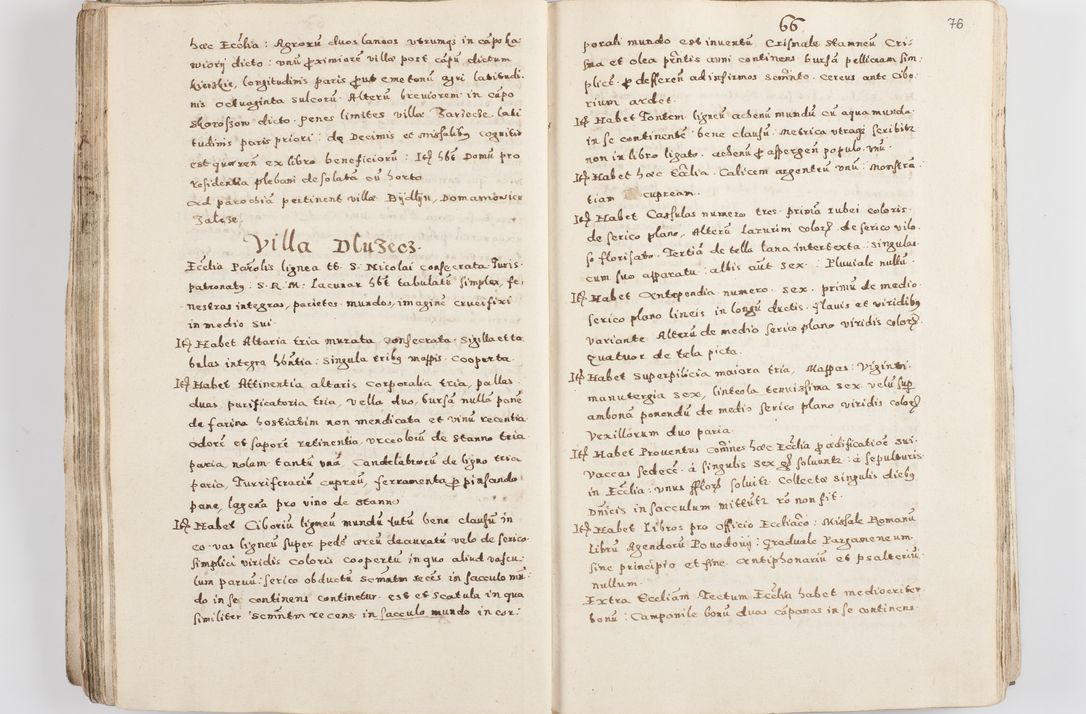 hac Ecclia : Agrorũ duos laneos utrumqȝ in cãpo ka
wiory dicto : unũ proximiorẽ villæ post cãpũ dictum
kierzkie, longitudinis paris prout cmetonũ agri latitudi,
nis octuaginta sulcorũ. Alterũ breviorem in cãpo
skoroszow dicto. penes limites villæ Jaroscze. lati
tudinis paris priori : de Decimis et missalibus cognitio
est quæren̄ ex libro beneficiorũ : Itȝ hẽt Domũ pro
residentia plebani desolatã cũ horto
Ad parochiã pertinent villæ Bydlyn, Domaniowice
Zaleze.
Villa Dluzecz.
Ecclia Parolis lignea tt. S. Nicolai consecrata. Juris
patronatȝ : S. R. M. Lacunar hẽt tabulatũ simplex, fe,
nestras integras, parietes mundos, imaginẽ crucifixi
in medio sui.
Itȝ Habet Altaria tria murata consecrata. sigilla et ta
bulas integra hñtia : singula tribȝ mappis. cooperta.
Itȝ Habet Attinentia altaris corporalia tria, pallas
duas, purificatoria tria, vella duo, bursã nullã panẽ
de farina hostiatim non mendicata et vinũ recentia
odorẽ et saporẽ retinentia, urceolorũ de stanno tria
paria, nolam tantũ unã, Candelabrorũ de ligno tria
paria, Turriferaciũ cupreũ, ferramenta pro pinsando
pane, lagena pro vino de stanno
Itȝ Habet Ciboriũ ligneũ mundũ tutũ bene clausũ in
eo vas ligneũ super pedẽ æreũ deauratũ velo de serico
simplici viridis coloris coopertũ in quo aliud vascu,
lum parvũ : serico obductũ scm̃ntm recẽs in sacculo mũ
do in se continens continetur. est et scatula in qua
similiter scm̃ntm recens in sacculo mundo in cor :
66
76
porali mundo est inventũ Crismale stanneũ Cris
ma et olea pr̃ntis anni continens bursã pelliceam sim,
plicẽ pro defferen̄ ad infirmos scm̃nto. cereus ante cibo,
rium ardet.
Itȝ Habet Fontem ligneũ ac̃henũ mundũ cũ aqua munda
in se continentẽ bene clausũ. Metrica utraqȝ scribitr
non in libro ligato. achenũ pro aspergen̄ populo. unũ.
Itȝ Habet hæc Ecclia. Calicem argenteũ unũ : Monstrã
tiam cupream.
Itȝ Habet Cassulas numero tres. prima rubei coloris.
de serico plano. Alterã lazurim colorȝ de serico vilo.
so florisato. Tertiã de tella lana intertexta : singulas
cum suo apparatu : albis aũt sex. : Pluviale nullũ.
Itȝ Habet Antependia numero. sex. primũ de medio
serico plano lineis in longũ ductis. flavis et viridibȝ
variante. Alterũ de medio serico plano viridis colorȝ.
quatuor de tela picta.
Itȝ Habet superpilicia maiora tria, Mappas : Viginti
manutergia sex, linteola tenuissima sex. velũ sup
ambonã ponendũ de medio serico plano viridis colorȝ
vexillorum duo paria.
Itȝ Habet Proventus cõines hæc Ecclia pro ædificatioẽ sui.
Vaccas sedecẽ. á singulis sex gȝ soluuntr : á sepulturis
in Ecclia : unus fflorȝ solvitr. Collecta singulis diebȝ
Dñicis in sacculum mittitr rõ non fit.
Itȝ Habet Libros pro Officio Eccliaco : Missale Romanũ
Librũ Agendorũ Povodouy : Graduale Pargameneum
sine principio et fine. Antiphonariũ et psalteriũ
nullum.
Extra Eccliam Tectum Ecclia habet mediocriter
bonũ : Campanile bonũ duas cãpanas in se continens